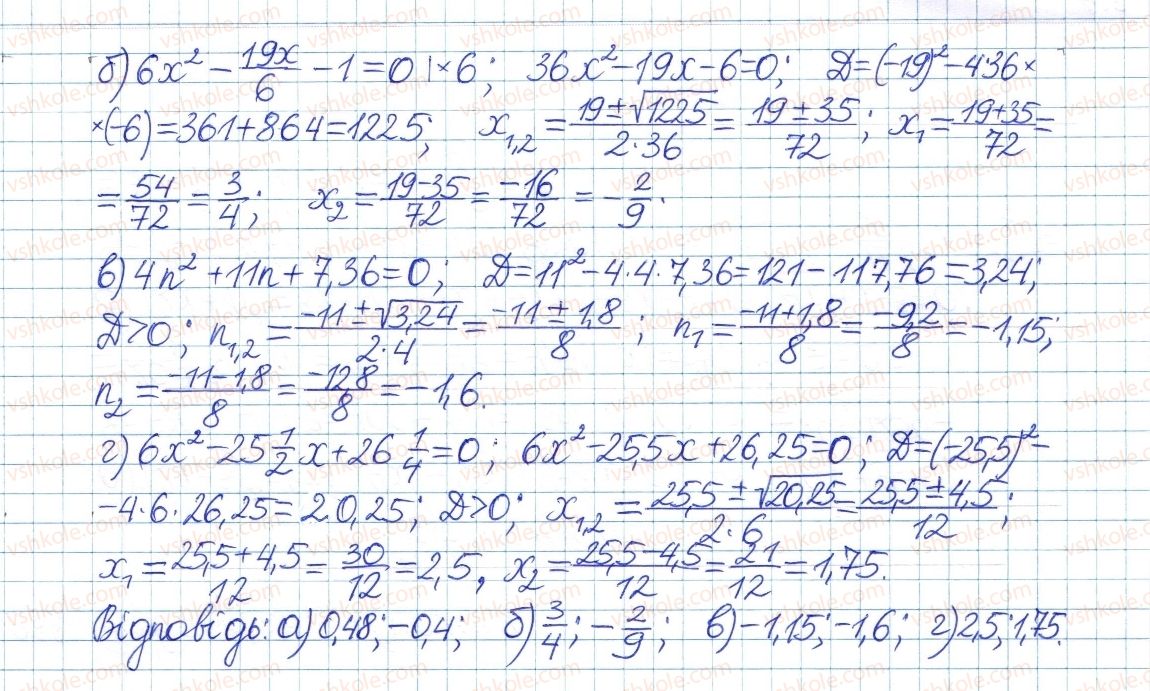 б) 6x² − 19x/6 − 1 = 0 |×6; 36x² − 19x − 6 = 0; D = (−19)² − 4·36 ×
×(−6) = 361 + 864 = 1225; x₁,₂ = (19 ± √1225)/(2·36) = (19 ± 35)/72; x₁ = (19+35)/72 =
= 54/72 = 3/4; x₂ = (19−35)/72 = −16/72 = −2/9.
в) 4n² + 11n + 7,36 = 0; D = 11² − 4·4·7,36 = 121 − 117,76 = 3,24;
D>0; n₁,₂ = (−11 ± √3,24)/(2·4) = (−11 ± 1,8)/8; n₁ = (−11+1,8)/8 = −9,2/8 = −1,15;
n₂ = (−11−1,8)/8 = −12,8/8 = −1,6.
г) 6x² − 25 1/2 x + 26 1/4 = 0; 6x² − 25,5x + 26,25 = 0; D = (−25,5)² −
−4·6·26,25 = 20,25; D>0; x₁,₂ = (25,5 ± √20,25)/(2·6) = (25,5 ± 4,5)/12;
x₁ = (25,5 + 4,5)/12 = 30/12 = 2,5, x₂ = (25,5 − 4,5)/12 = 21/12 = 1,75.
Відповідь: а) 0,48; −0,4; б) 3/4; −2/9; в) −1,15; −1,6; г) 2,5; 1,75.
vshkole.com